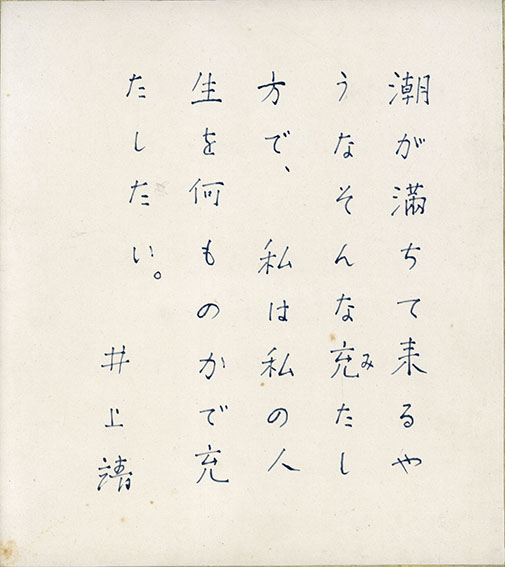 潮が満ちて来るや
うなそんな充みたし
方で、私は私の人
生を何ものかで充
たしたい。
井上靖